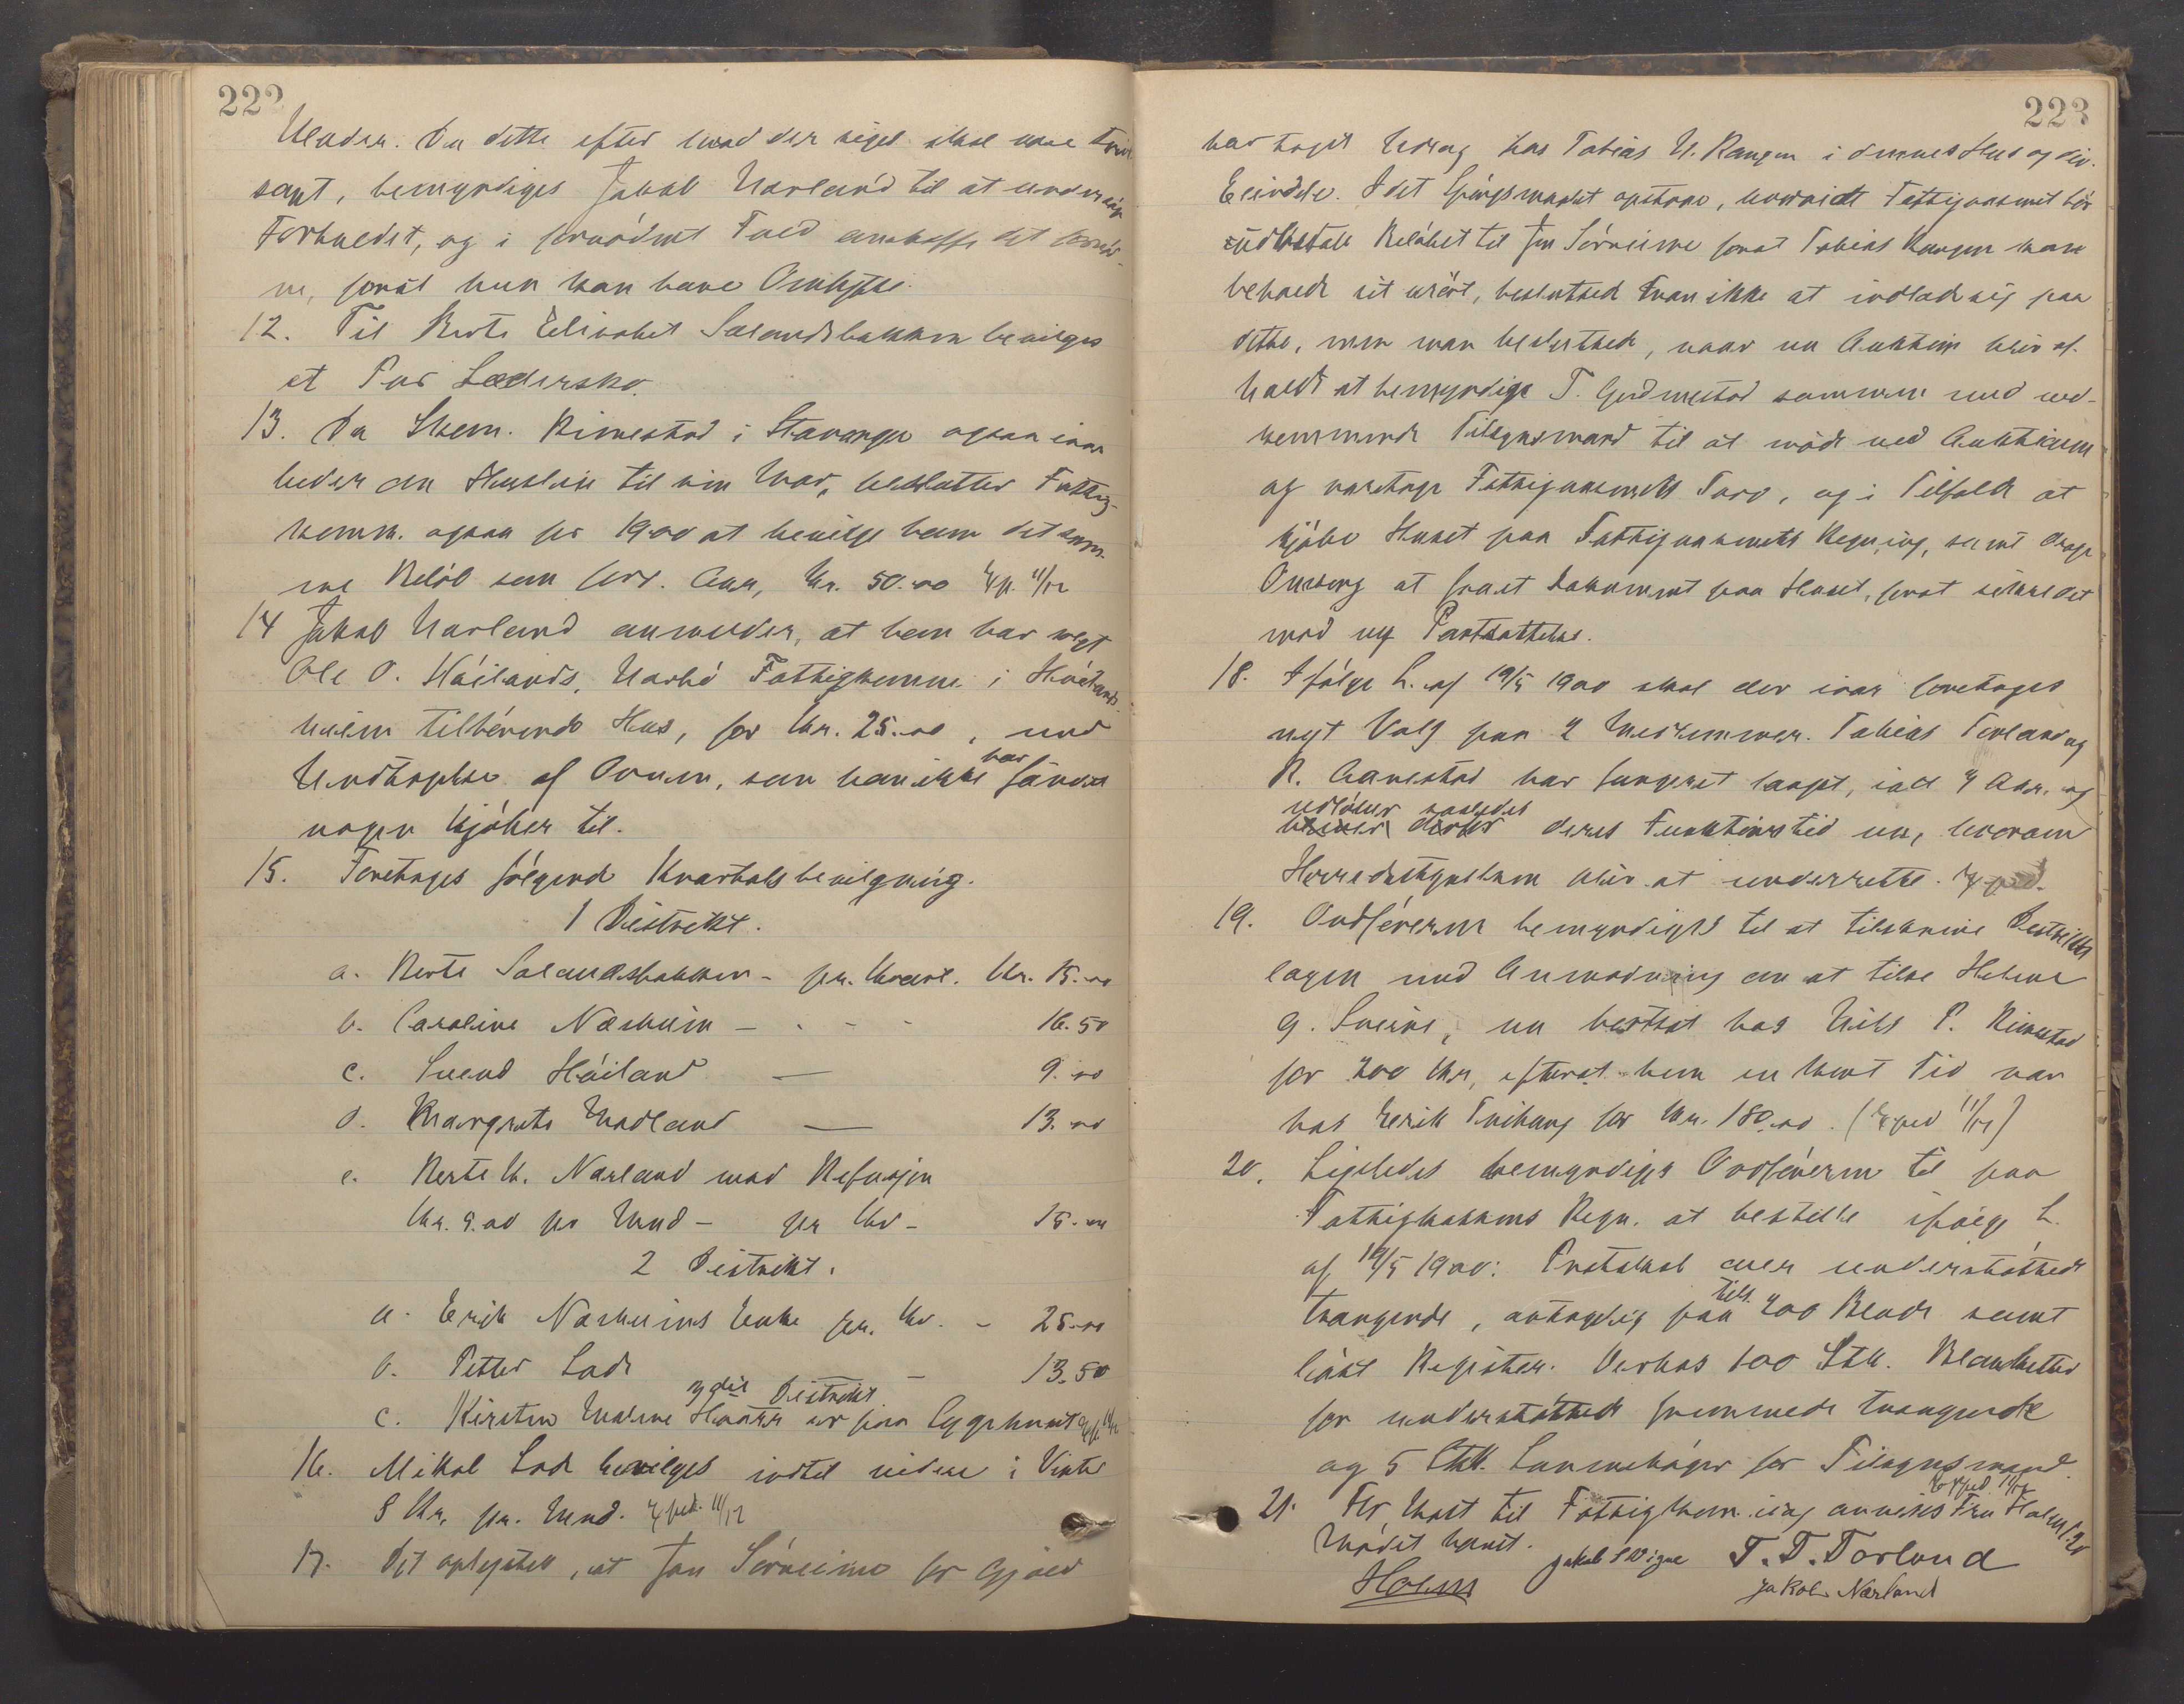 222
Klæder. Da dette efter hvad der siges skal være tvivl
samt, bemyndiges Jakob Narland til at undersøge
Forholdet, og i fornødent Fald anskaffe det fornød-
ne, forat hun kan have Ombytte.
12. Til Berte Elisabet Salandsbakken bevilges
et Par Lædersko.
13. Da Skem. Rimestad i Stavanger ogsaa iaar
beder om Husleie til sin Mor, beslutter Fattig-
komm. ogsaa for 1900 at bevilge ham det sam-
me Beløb som forr. Aar, Kr. 50.00 Exp. 11/12
14 Jakob Narland anmelder, at han har solgt
Ole O. Høilands, Narbø Fattigkomme i Høilands-
heien tilhørende Hus, for Kr. 25.00, med
Undtagelse af Ovnen, som han ikke har fundet
nogen Kjøber til.
15. Foretages følgende Kvartalsbevilgning.
1 Distrikt.
a. Berte Salandsbakken - pr. Kvart. Kr. 15.00
b. Caroline Næsheim - - - - 16.50
c. Svend Høiland — 9.00
d. Margrete Madland — 13.00
e. Berte K. Narland mod Refusjon
Kr. 9.00 pr Mnd - pr Kv - 15.00
2 Distrikt.
a. Erik Næsheims Enke pr. Kv. - 25.00
b. Petter Lode - 13.50
3die Distrikt
c. Kirsten Malene Haarr er paa Sygehuset Exp. 11/12
16. Mikal Lode bevilges indtil videre i Vinter
8 Kr. pr. Mnd. Exped. 11/12
17. Det oplystes, at Jon Sørheim for Gjæld
223
har taget Udlæg hos Tobias U. Kangen i dennes Hus og div.
Eiendele. Idet Spørgsmaalet opstaar, hvorvidt Fattigvæsenet bør
udbetale Beløbet til Jon Sørheim forat Tobias Kangen kan
beholde sit urørt, besluttede man ikke at indlade sig paa
dette, men man besluttede, naar en Auktion blir af-
holdt at bemyndige T. Gudmestad sammen med ved-
kommende Tilsynsmand til at møde ved Auktionen
og varetage Fattigvæsenets Tarv, og i Tilfælde at
kjøbe Huset paa Fattigvæsenets Regning, samt drage
Omsorg at faa et Dokument paa Huset, forat sikre det
mod ny Pantsættelse.
18. Ifølge L. af 19/5 1900 skal der iaar foretages
nyt Valg paa 2 Medlemmer. Tobias Torland og
R. Aanestad har fungeret længst, ialt 4 Aar, og
udløber saaledes
deres Funktionstid nu, hvorom
Herredsstyrelsen blir at underrette. Exped.
19. Ordføreren bemyndiges til at tilskrive Distrikts-
lægen med Anmodning om at tilse Helene
G. Sveine, nu bortsat hos Nils P. Rimestad
for 200 Kr, efterat hun en kort Tid var
hos Eerik Tvihaug for Kr. 180.00. (Exped 11/12)
20. Ligeledes bemyndiges Ordføreren til paa
Fattigkassens Regn. at bestille ifølge L.
af 19/5 1900: Protokol over understøttede
trængende, antagelig paa tils. 200 Blade samt
løst Register. Desuden 100 Stk. Blanketter
for understøttede fremmede trængende
og 5 Stkk. Lommebøger for Tilsynsmænd.
Exped. 11/12
21. For Kost til Fattigkom. idag anvises Fru Holm
Mødet hævet.
Holm Jakob S Vigre T. T. Torland
Jakob Nærland